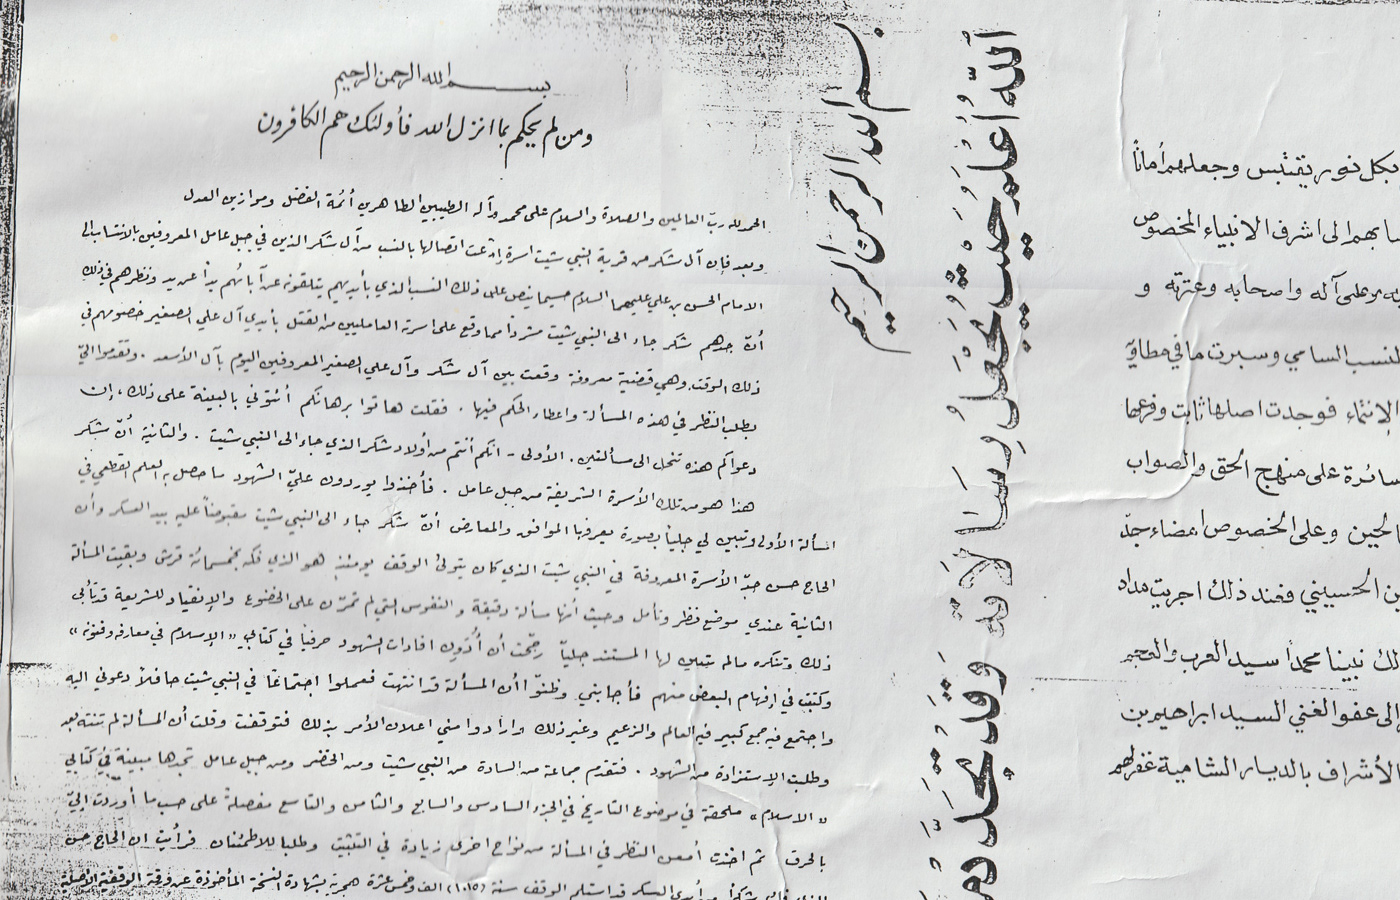 بسم الله الرحمن الرحيم
ومن لم يحكم بما انزل الله فأولئك هم الكافرون
الحمد لله ربّ العالمين والصلاة والسلام على محمد وآله الطيبين الطاهرين أئمة الفضل وموازين العدل
وبعد فإن آل شكر من قرية النبي شيت اسرة إدّعت اتصالها بالنسب من آل شكر الذين في جبل عامل المعروفين بالانتساب الى
الامام الحسن بن علي عليهما السلام حسبما ينص على ذلك النسب الذي بأيديهم يتلقونه عن آبائهم يداً عن يد ونظرهم في ذلك
أنّ جدهم شكر جاء الى النبي شيت مشرداً مما وقع على اسرته العامليين من القتل بأيدي آل علي الصغير خصومهم في
ذلك الوقت وهي قضية معروفة وقعت بين آل شكر وآل علي الصغير المعروفين اليوم بآل الأسعد . وتقدموا اليّ
بطلب النظر في هذه المسألة واعطاء الحكم فيها . فقلت هاتوا برهانكم أئتوني بالبينة على ذلك ، إن
دعواكم هذه تنحل الى مسألتين . الأولى - انكم أنتم من أولاد شكر الذي جاء الى النبي شيت . والثانية أنّ شكر
هذا هو من تلك الأسرة الشريفة من جبل عامل . فأخذوا يوردون عليّ الشهود ما حصل به العلم القطعي في
المسألة الأولى وتبين لي جلياً بصورة يعرفها الموافق والمعارض أنّ شكر جاء الى النبي شيت مقبوضاً عليه بيد العسكر وأن
الحاج حسن جدّ الأسرة المعروفة في النبي شيت الذي كان يتولى الوقف يومئذ هو الذي فكه بخمسمائة قرش وبقيت المسألة
الثانية عندي موضع نظر وتأمل وحيث أنها مسألة دقيقة والنفوس التي لم تتمرن على الخضوع والإنقياد للشريعة قد تأبى
ذلك وتنكره مالم يتبين لها المستند جلياً رجّحت أن أدّون افادات الشهود حرفيا في كتابي « الإسلام في معارفه وفنونه »
وكتبت في إفهام البعض منهم فأجابني وظنوّا أن المسألة قد انتهت فعملوا اجتماعاً في النبي شيت حافلاً دعوني اليه
واجتمع فيه جمع كبير فيه العالم والزعيم وغير ذلك وارادوا مني اعلان الأمر بذلك فتوقفت وقلت أن المسألة لم تنته بعد
وطلبت الإستزادة من الشهود . فتقدم جماعة من السادة من النبي شيت ومن الخضر ومن جبل عامل تجدها مبينة في كتابي
« الاسلام » ملحقة في موضوع التاريخ في الجزء السادس والسابع والثامن والتاسع مفصلة على حسب ما أوردت اليّ
بالحرف ثم اخذت أمعن النظر في المسألة من نواح اخرى زيادة في التثبت وطلبا للاطمئنان فرأيت ان الحاج حسن
العسكر قد استلم الوقف سنة (١٠١٥) الف وخمس عشرة هجرية بشهادة النسخة المأخوذة عن ورقة الوقفية الأصلية
بسم الله الرحمن الرحيم
الله اعلم حيث يجعل رسالاته وقد
بكل نور يقتبس وجعلهم أماناً
بهم الى اشرف الانبياء المخصوص
على آله واصحابه وعترته و
النسب السامي وسبرت ما في مطاويّه
الإنتماء فوجدت اصلها ثابت وفرعها
سائرة على منهج الحق والصواب
الحين وعلى الخصوص امضاء جدّ
الحسيني فعند ذلك اجريت مداد
نبينا محمداً سيد العرب والعجم
الى عفو الغني السيد ابراهيم بن
الأشراف بالديار الشامية غفر لهم